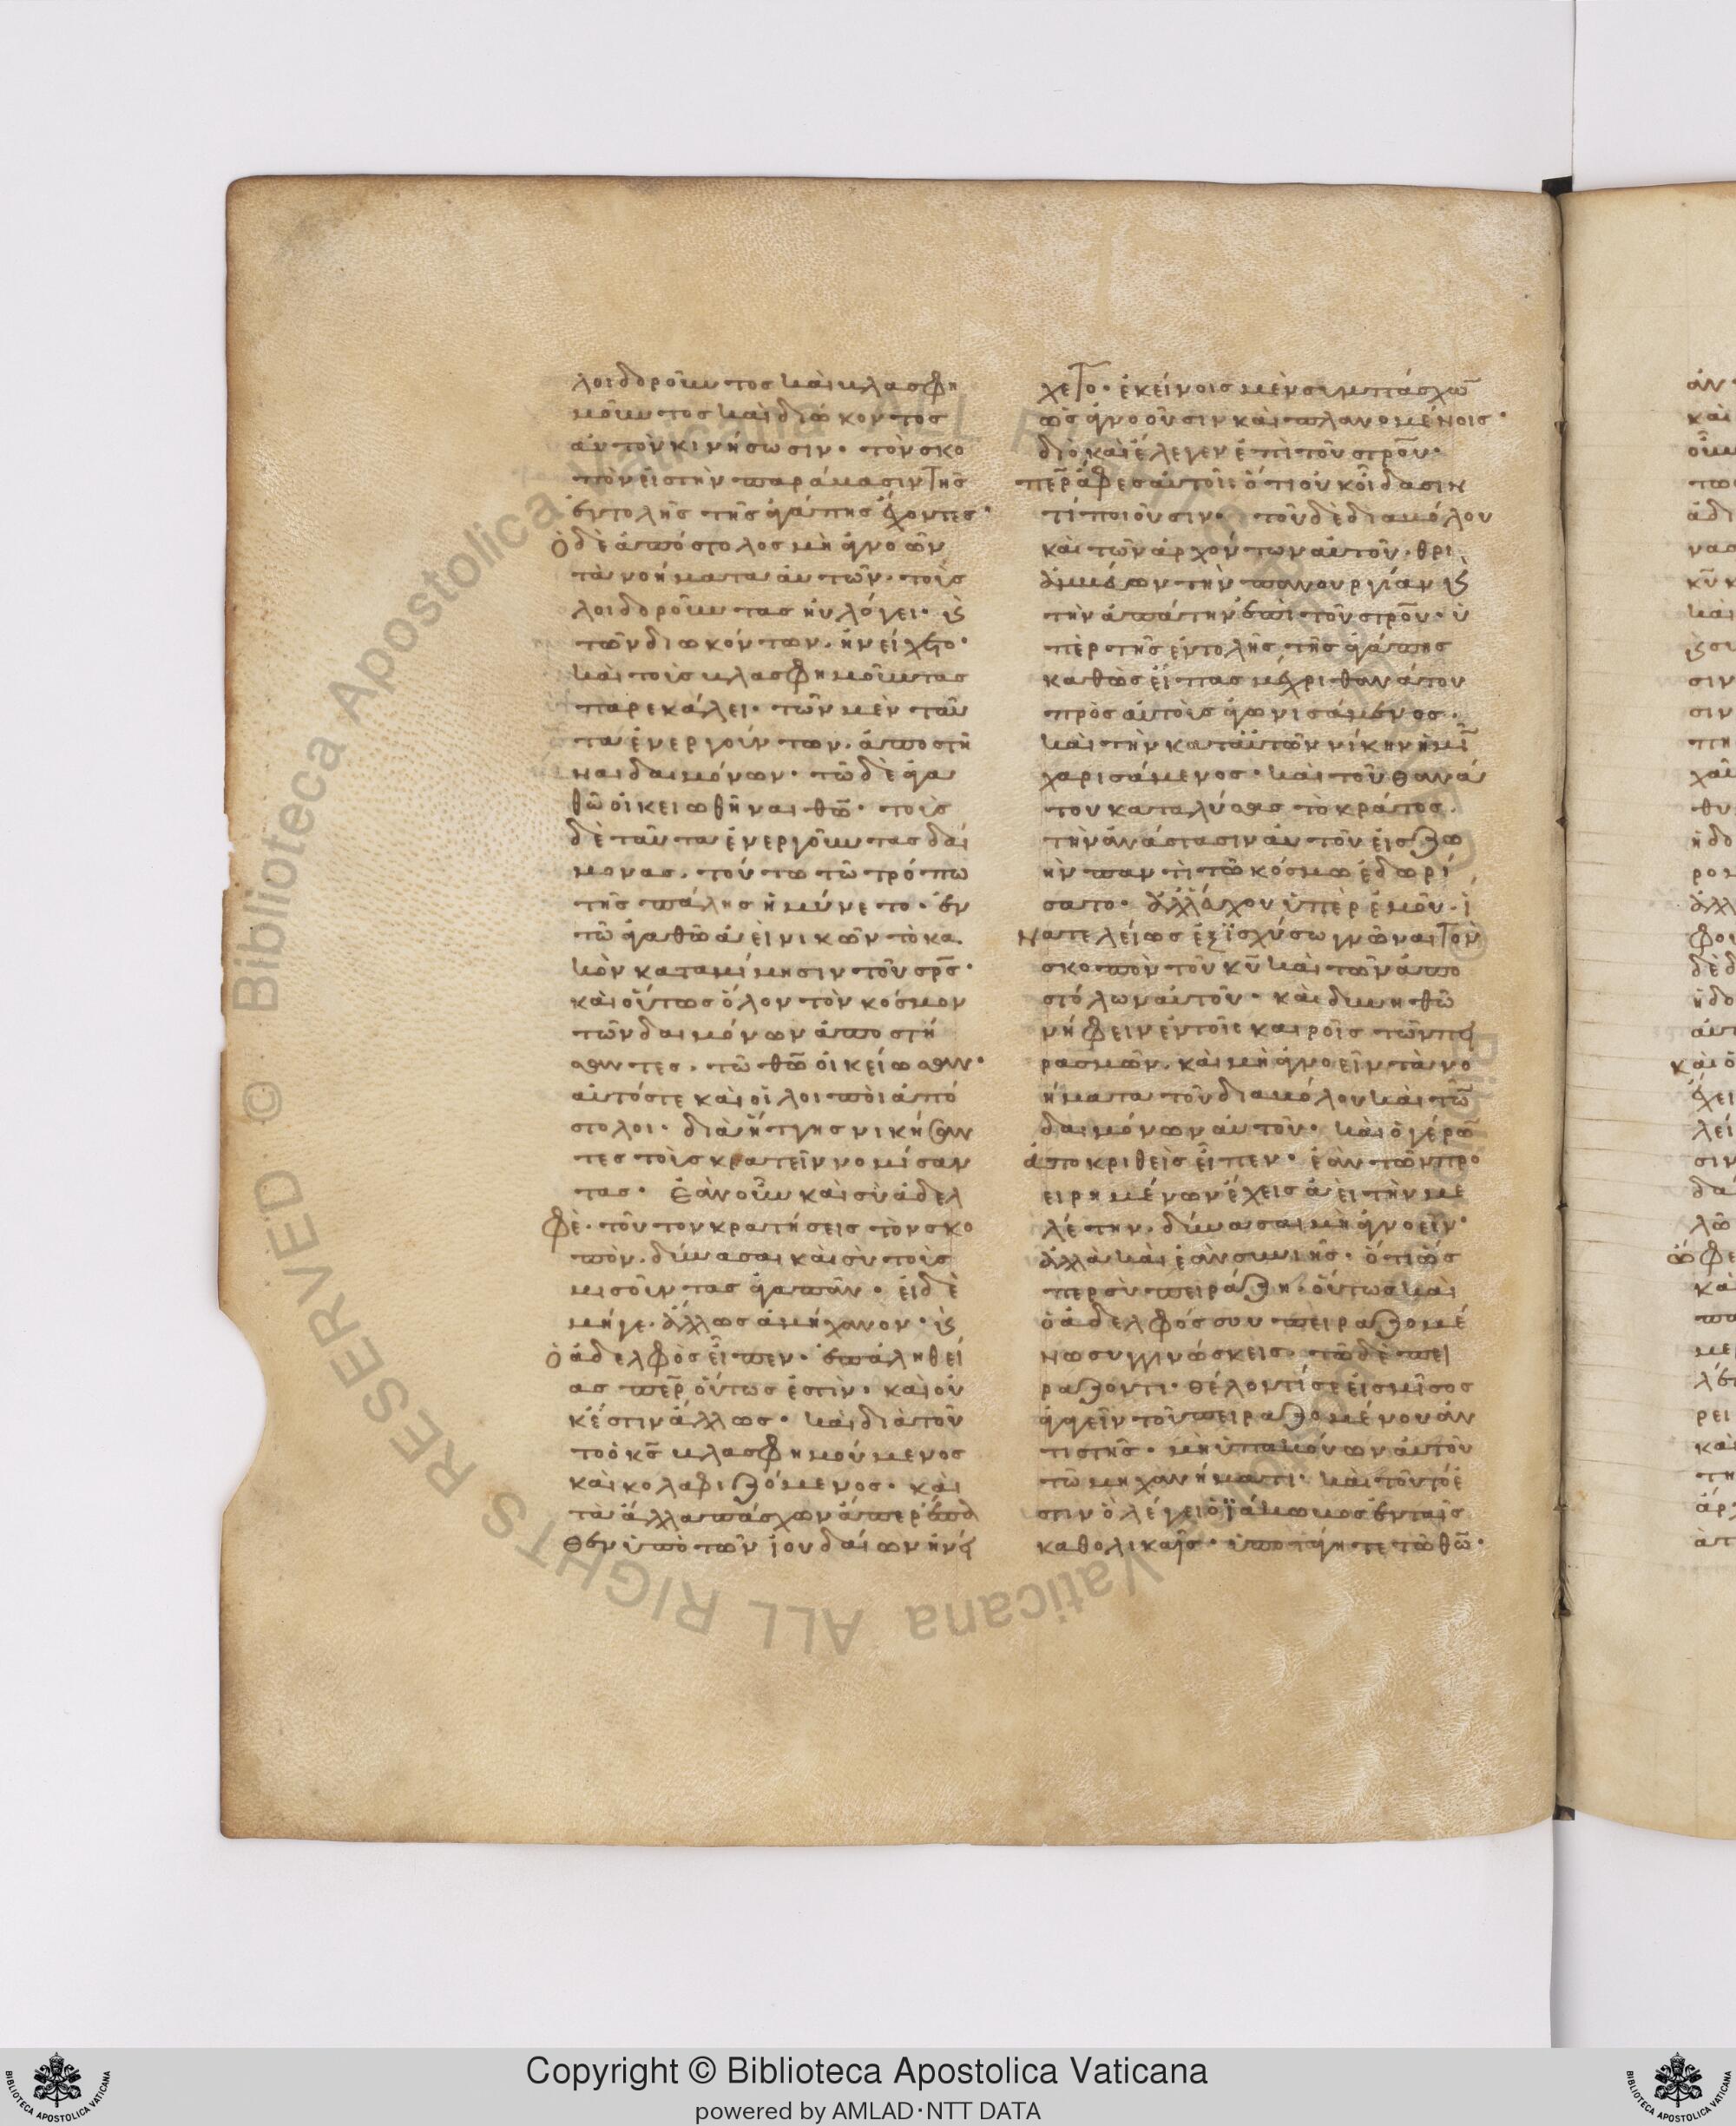 λοιδοροῦντος καὶ βλασφη
μοῦντος καὶ διώκοντος
αὐτὸν κινήσωσιν· τὸν σκο
πὸν εἰς τὴν παράβασιν τῆς
ἐντολῆς τῆς ἀγάπης ἔχοντες·
ὁ δὲ ἀπόστολος μὴ ἀγνοῶν
τὰ νοήματα αὐτῶν· τοὺς
λοιδοροῦντας ηὐλόγει· κ̀
τῶν διωκόντων. ἠνείχετο·
καὶ τοὺς βλασφημοῦντας
παρεκάλει· τῶν μὲν ταῦ
τα ἐνεργούντων. ἀποστῆ
ναι δαιμόνων· τῶ δὲ ἀγα
θῶ οἰκειωθῆναι θ̅ω̅· τοὺς
δὲ ταῦτα ἐνεργοῦντας δαί
μονας. τούτω τῶ τρόπω
τῆς πάλης ἠμύνετο· ἐν
τῶ ἀγαθῶ ἀεὶ νικῶν τὸ κα
κὸν κατὰ μίμησιν τοῦ σ̅ρ̅ς̅·
καὶ οὕτως ὅλον τὸν κόσμον
τῶν δαιμόνων ἀποστή
σαντες. τῶ θ̅ω̅ οἰκείωσαν·
αὐτός τε καὶ οἱ λοιποὶ ἀπό
στολοι· διὰ ἥττης νικήσαν
τες τοὺς κρατεῖν νομίσαν
τας· ἐὰν οὖν καὶ σὺ ἀδελ
φὲ. τοῦτον κρατήσεις τὸν σκο
πὸν. δύνασαι καὶ σὺ τοὺς
μισοῦντας ἀγαπᾶν· εἰ δὲ
μήγε. ἄλλως ἀμήχανον· κ̀
ὁ ἀδελφὸς εἶπεν. ἐπ' ἀληθεί
ας π̅ε̅ρ̅ οὕτως ἐστὶν· καὶ οὐ
κ' ἔστιν ἄλλως· καὶ διὰ τοῦ
το ὁ κ̅ς̅ βλασφημούμενος
καὶ κολαφιζόμενος· καὶ
τὰ ἄλλα πάσχων ἅπερ ἔπα
θεν ὑπὸ τῶν ἰουδαίων ἠνεί
χετο· ἐκείνοις μὲν συμπάσχω̅
ὡς ἀγνοοῦσιν καὶ πλανομένοις·
διὸ καὶ ἔλεγεν ἐπὶ τοῦ στρ̅ο̅υ̅·
π̅ε̅ρ̅ ἄφες αὐτοῖς ὅτι οὐκ οἴδασιν
τί ποιοῦσιν· τοῦ δὲ διαβόλου
καὶ τῶν ἀρχόντων αὐτοῦ. θρι
αμβεύων τὴν πανουργίαν κ̀
τὴν ἀπάτην ἐπὶ τοῦ στρ̅ο̅υ̅· ὑ
πὲρ τῆς ἐντολῆς τῆς ἀγάπης
καθὼς εἶπας μέχρι θανάτου
πρὸς αὐτοὺς ἀγωνισάμενος.
καὶ τὴν κατ' αὐτῶν νίκην ἡμῖ̅
χαρισάμενος· καὶ τοῦ θανά
του καταλύσας τὸ κράτος.
τὴν ἀνάστασιν αὐτοῦ εἰς ζω
ὴν παντὶ τῶ κόσμω ἐδωρί
σατο· ἀλλ' εὔχου ὑπὲρ ἐμοῦ. ἵ
να τελείως ἐξϊσχύσω γνῶναι τὸν
σκοπὸν τοῦ κ̅υ̅ καὶ τῶν ἀπο
στόλων αὐτοῦ· καὶ δυνηθῶ
νήφειν ἐν τοῖς καιροῖς τῶν πει
ρασμῶν. καὶ μὴ ἀγνοεῖν τὰ νο
ήματα τοῦ διαβόλου καὶ τῶ̅
δαιμόνων αὐτοῦ· καὶ ὁ γέρω̅
ἀποκριθεὶς εἶπεν· ἐὰν τῶν προ
ειρημένων ἔχεις ἀεὶ τὴν με
λέτην. δύνασαι μὴ ἀγνοεῖν·
ἀλλὰ καὶ ἐὰν συνιῆς· ὅτι ὥς
περ σὺ πειράζη. οὕτως καὶ
ὁ ἀδελφός σου πειράζομέ
νω συγγινώσκεις. τῶ δὲ πει
ράζοντι· θέλοντί σε εἰς μῖσος
ἀγαγεῖν τοῦ πειραζομένου ἀν
τιστῆς· μὴ ὑπακούων αὐτοῦ
τῶ μηχανήματι· καὶ τοῦτό ἐ
στιν ὃ λέγει ὁ ϊάκωβος ἐν ταῖς
καθολικαῖς· ὑποτάγητε τῶ θ̅ω̅·
Copyright © Biblioteca Apostolica Vaticana
powered by AMLAD·NTT DATA